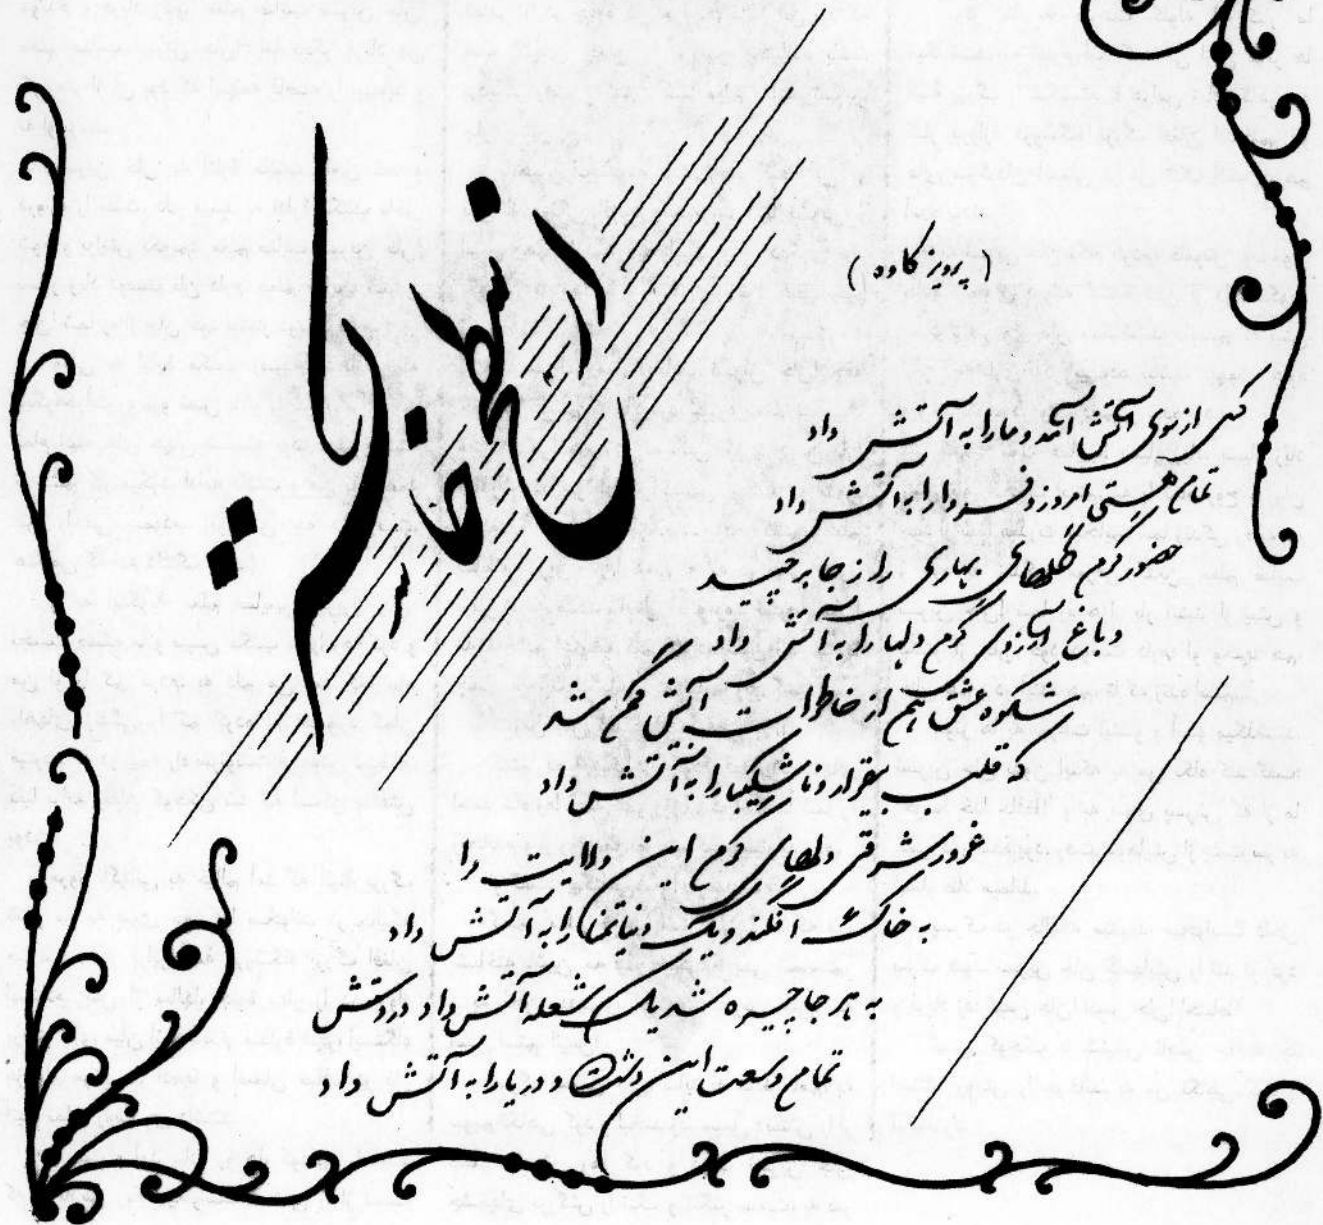 از خاطرات
(پرویز کاوه)
کسی از سوی آتش آمد و ما را به آتش داد
تمام هستی امروز و فردا را به آتش داد
حضور گرم گلهای بهاری را ز جا برچید
و باغ آرزوی گرم دلها را به آتش داد
شکوه عشق هم از خاطرات آتش گم شد
که قلب بیقرار و ناشکیبا را به آتش داد
غرور شرقی دلهای گرم این ولایت را
به خاک افکند و یک دنیا تمنا را به آتش داد
به هر جا چیره شد یک شعله آتش داد دردستش
تمام وسعت این دشت و دریا را به آتش داد